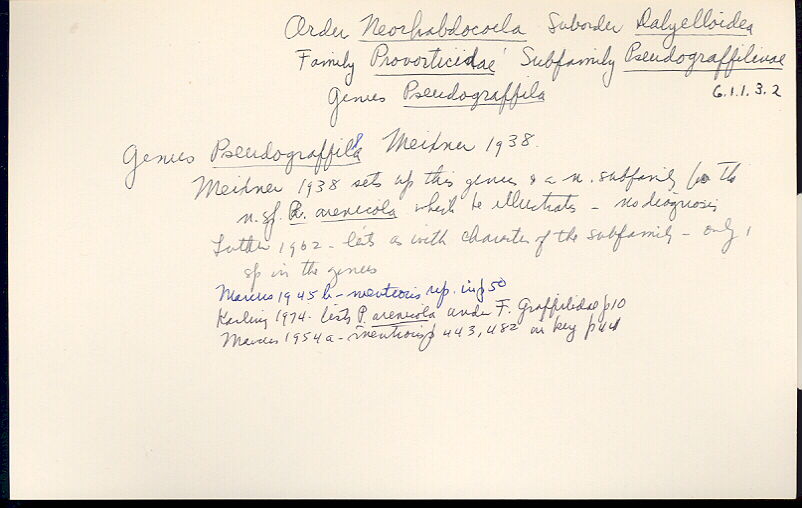 Order Neorhabdocoela Suborder Dalyelloidea
Family Provorticidae Subfamily Pseudograffilinae
Genus Pseudograffilla
6.1.1.3.2
Genus Pseudograffilla Meixner 1938.
Meixner 1938 sets up this genus & a n. subfamily for the
n. sp. P. arenicola which he illustrates - no diagnosis
Luther 1962 - lists as with character of the subfamily - only 1
sp in the genus
Marcus 1945 b - mentions rep. in p 50
Karling 1974 - lists P. arenicola under F. Graffillidae p 10
Marcus 1954 a - mentions p 443, 482 in key p